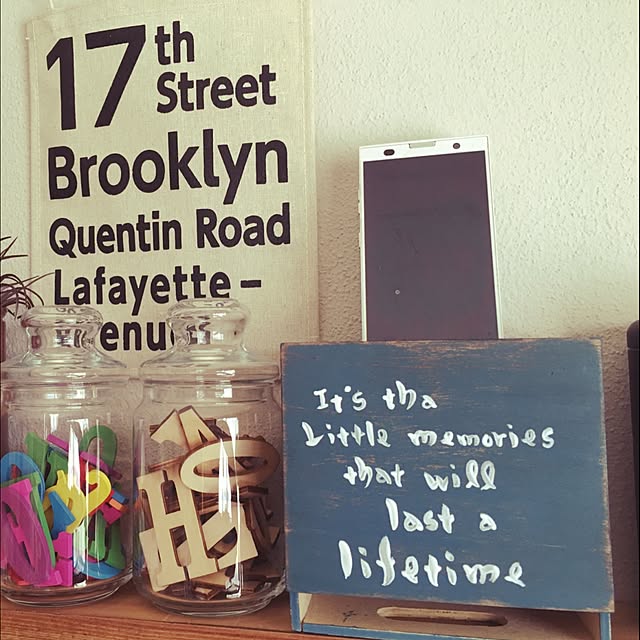 17th
Street
Brooklyn
Quentin Road
Lafayette –
enu
It's tha
Little memories
that will
last a
lifetime